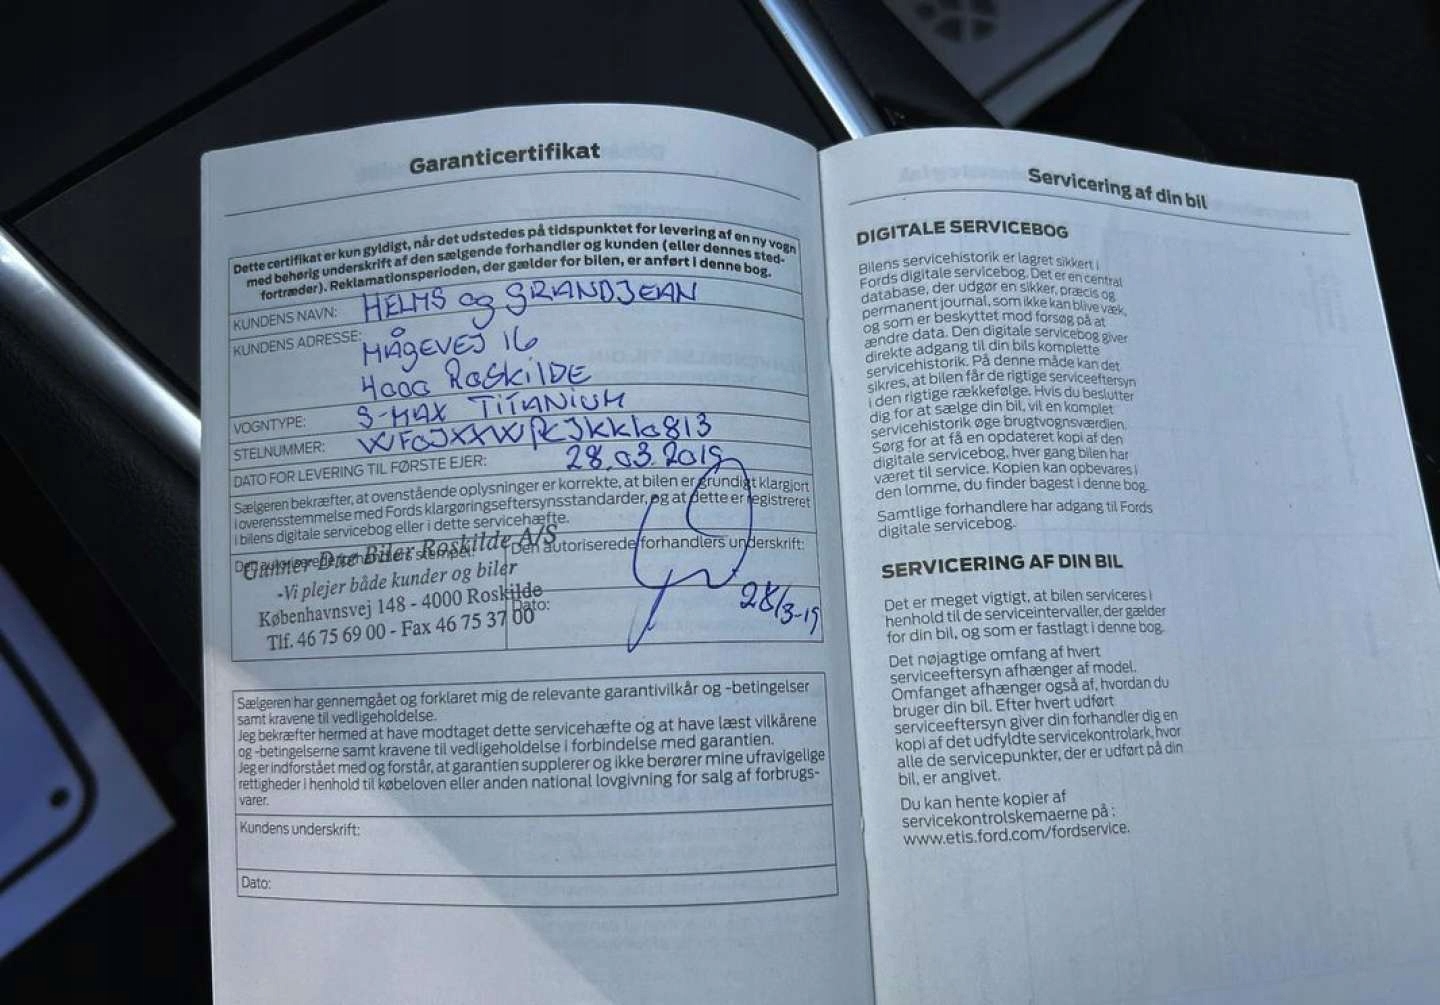 Garanticertifikat
Dette certifikat er kun gyldigt, når det udstedes på tidspunktet for levering af en ny vogn
med behørig underskrift af den sælgende forhandler og kunden (eller dennes sted-
fortræder). Reklamationsperioden, der gælder for bilen, er anført i denne bog.
KUNDENS NAVN: HELMS og GRANDJEAN
KUNDENS ADRESSE: MÅGEVEJ 16
4000 ROSKILDE
VOGNTYPE: S-MAX TITANIUM
STELNUMMER:
DATO FOR LEVERING TIL FØRSTE EJER: 28.03.2019
Sælgeren bekræfter, at ovenstående oplysninger er korrekte, at bilen er grundigt klargjort
i overensstemmelse med Fords klargøringseftersynsstandarder, og at dette er registreret
i bilens digitale servicebog eller i dette servicehæfte.
Den autoriserede forhandlers underskrift:
Biler Roskilde A/S
-Vi plejer både kunder og biler
Københavnsvej 148 - 4000 Roskilde
Tlf. 46 75 69 00 - Fax 46 75 37 00
Dato: 28/3-19
Sælgeren har gennemgået og forklaret mig de relevante garantivilkår og -betingelser
samt kravene til vedligeholdelse.
Jeg bekræfter hermed at have modtaget dette servicehæfte og at have læst vilkårene
og -betingelserne samt kravene til vedligeholdelse i forbindelse med garantien.
Jeg er indforstået med og forstår, at garantien supplerer og ikke berører mine ufravigelige
rettigheder i henhold til købeloven eller anden national lovgivning for salg af forbrugs-
varer.
Kundens underskrift:
Dato:
Servicering af din bil
DIGITALE SERVICEBOG
Bilens servicehistorik er lagret sikkert i
Fords digitale servicebog. Det er en central
database, der udgør en sikker, præcis og
permanent journal, som ikke kan blive væk,
og som er beskyttet mod forsøg på at
ændre data. Den digitale servicebog giver
direkte adgang til din bils komplette
servicehistorik. På denne måde kan det
sikres, at bilen får de rigtige serviceeftersyn
i den rigtige rækkefølge. Hvis du beslutter
dig for at sælge din bil, vil en komplet
servicehistorik øge brugtvognsværdien.
Sørg for at få en opdateret kopi af den
digitale servicebog, hver gang bilen har
været til service. Kopien kan opbevares i
den lomme, du finder bagest i denne bog.
Samtlige forhandlere har adgang til Fords
digitale servicebog.
SERVICERING AF DIN BIL
Det er meget vigtigt, at bilen serviceres i
henhold til de serviceintervaller, der gælder
for din bil, og som er fastlagt i denne bog.
Det nøjagtige omfang af hvert
serviceeftersyn afhænger af model.
Omfanget afhænger også af, hvordan du
bruger din bil. Efter hvert udført
serviceeftersyn giver din forhandler dig en
kopi af det udfyldte servicekontrolark, hvor
alle de servicepunkter, der er udført på din
bil, er angivet.
Du kan hente kopier af
servicekontrolskemaerne på :
www.etis.ford.com/fordservice.